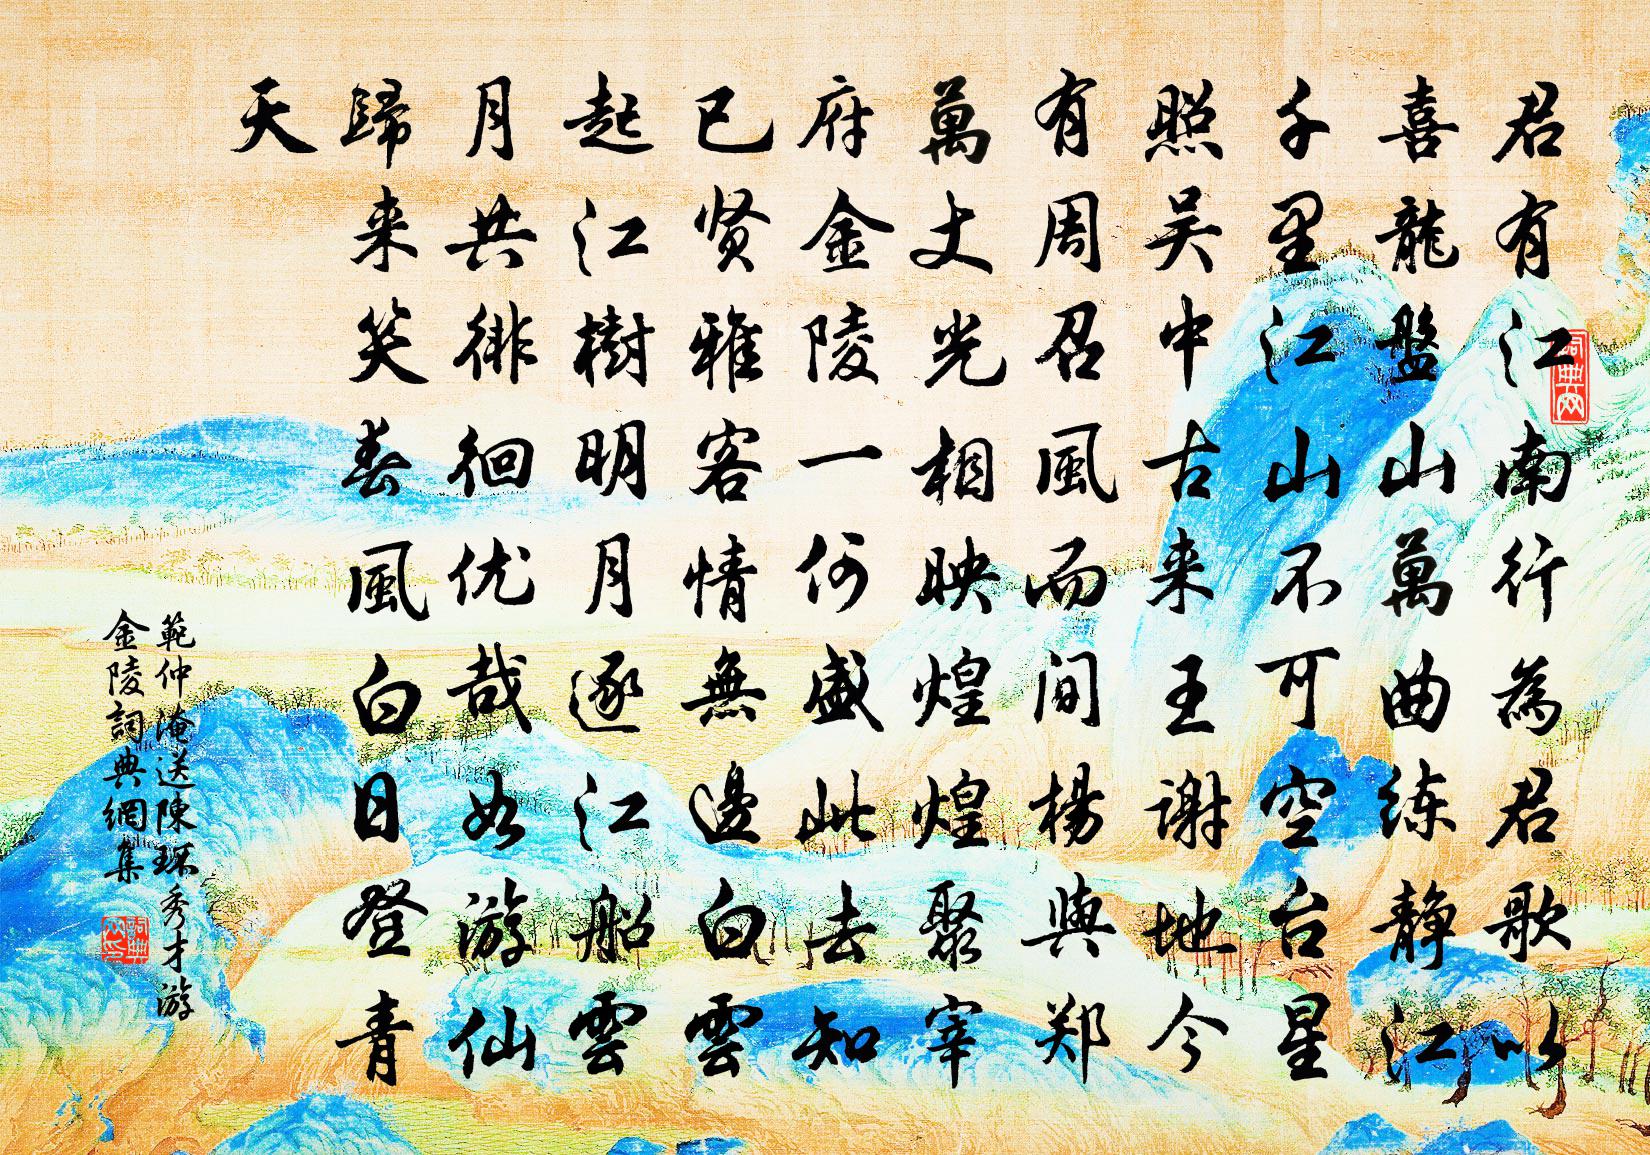 君有江南行為君歌以
喜龍盤山萬曲练静江
千里江山不可空台星
照吴中古来王谢地今
有周召風而间楊與郑
萬丈光相映煌煌聚宰
府金陵一何盛此去知
已贤雅客情無邊白雲
起江樹明月逐江船雲
月共徘徊优哉如游仙
歸来笑春風白日登青
天
範仲淹送陳琢秀才游
金陵詞典網集
詞典网